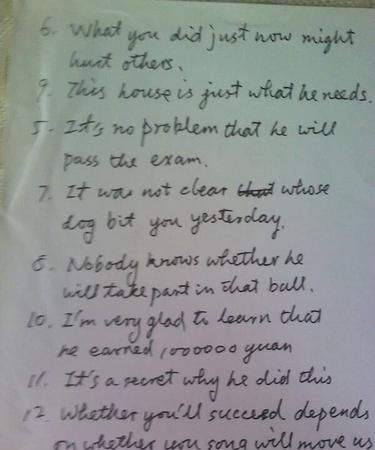 6. What you did just now might
hurt others.
9. This house is just what he needs.
5. It's no problem that he will
pass the exam.
7. It was not clear that whose
dog bit you yesterday.
8. Nobody knows whether he
will take part in that ball.
10. I'm very glad to learn that
he earned 1000000 yuan
11. It's a secret why he did this
12. Whether you'll succeed depends
on whether you song will move us